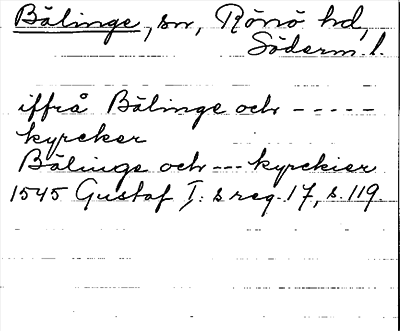 Bälinge, sn, Rönö hd,
Söderm. l.
iffrå Bälinge och - - - - -
kyrcker
Bälinge och --- kyrckier
1545 Gustaf I:s reg. 17, s. 119.